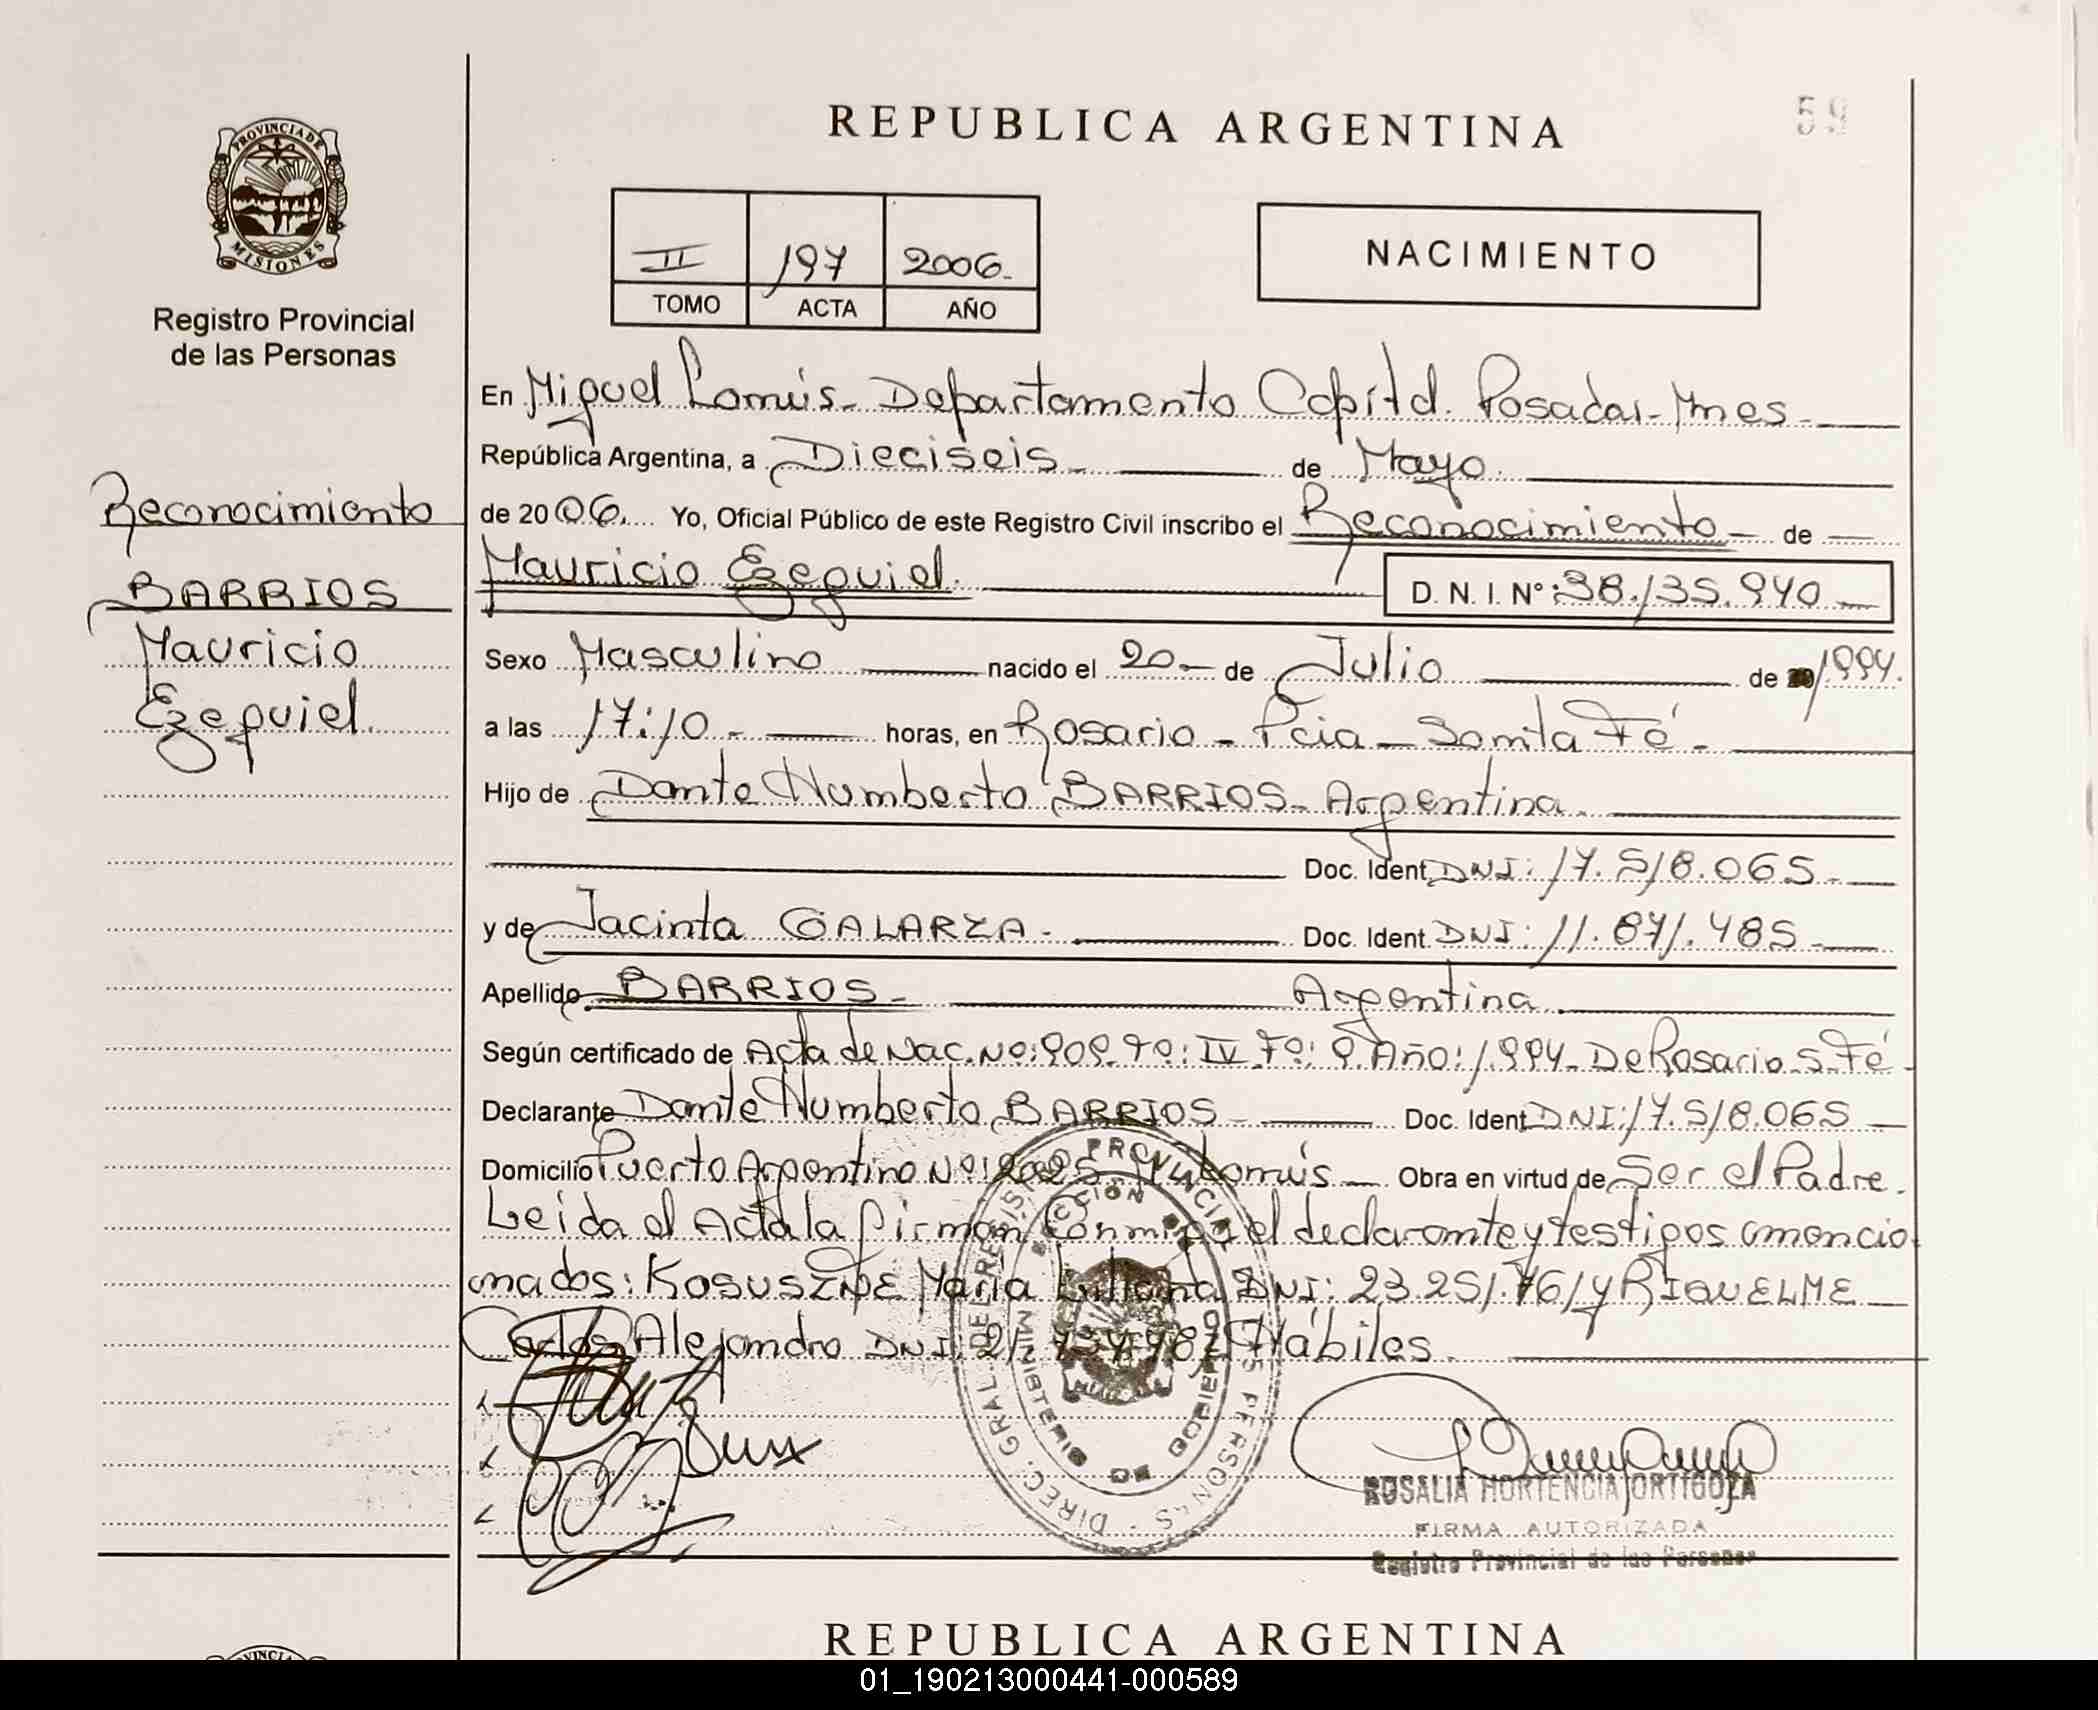 REPUBLICA ARGENTINA
59
PROVINCIA DE
MISIONES
Registro Provincial
de las Personas
II 197 2006.
TOMO ACTA AÑO
NACIMIENTO
En Miguel Lanús - Departamento Capital. Posadas - Mnes -
República Argentina, a Dieciseis - de Mayo.
de 2006. Yo, Oficial Público de este Registro Civil inscribo el Reconocimiento - de
Mauricio Ezequiel. D. N. I. Nº: 38.135.940
Reconocimiento
BARRIOS
Mauricio
Ezequiel.
Sexo Masculino nacido el 20 - de Julio de 1994.
a las 17:10 - horas, en Rosario - Pcia - Santa Fé -
Hijo de Dante Humberto BARRIOS - Argentina.
Doc. Ident. DNI: 17.518.065 -
y de Jacinta GALARZA - Doc. Ident. DNI: 11.871.485
Apellido BARRIOS - Argentina.
Según certificado de Acta de Nac. Nº: 909. Tº: IV Fº: 9. Año: 1.994 - De Rosario S. Fé
Declarante Dante Humberto BARRIOS - Doc. Ident. DNI: 17.518.065
Domicilio Puerto Argentino Nº: 2025 Lanús Obra en virtud de Ser el Padre.
Leida el Acta la firman Conmigo el declarante y testigos mencio
nados: María Liliana DNI: 23.251.761 y RIQUELME
Carlos Alejandro DNI: Hábiles.
DIREC. GRAL. DEL REGISTRO PROVINCIAL DE LAS PERSONAS
MINISTERIO DE GOBIERNO
ROSALIA HORTENCIA ORTIGOZA
FIRMA AUTORIZADA
Registro Provincial de las Personas
REPUBLICA ARGENTINA
01_190213000441-000589